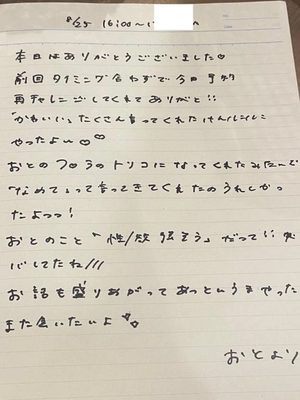 8/25 16:00〜
本日はありがとうございました♡
前回タイミング合わずで今日予約
再チャレンジしてくれてありがと!!
「かわいい」たくさん言ってくれた
やったよ〜♡♡
おとの フロうのトリコになってくれたみたいで
"なめて"って言ってきてくれたのうれしかっ
たよっっ!
おとのこと「性/欲強そう」だって!!
バレてたね///
お話も盛りあがってあっというまやった
また会いたいよ
おとより